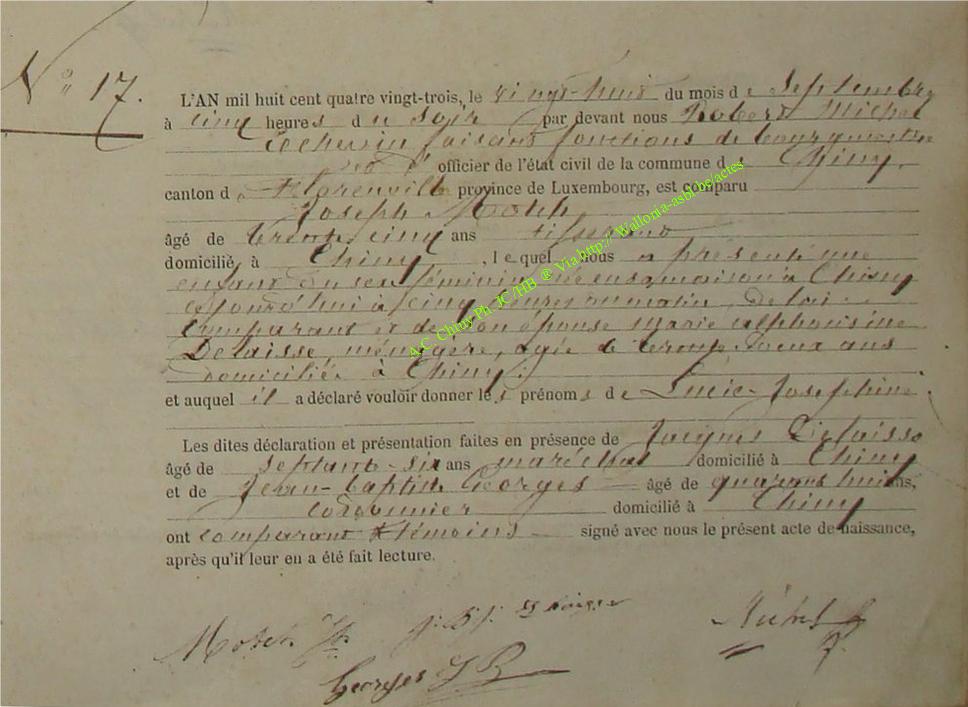 N° 17.
L'AN mil huit cent quatre vingt-trois, le vingt-huit du mois de Septembre
à cinq heures du soir par devant nous Robert Michel
Echevin faisant fonctions de bourgmestre
officier de l'état civil de la commune de Chiny,
canton de Florenville province de Luxembourg, est comparu
Joseph
âgé de trente cinq ans tisserand
domicilié à Chiny, lequel nous a présenté une
enfant du sexe féminin née en sa maison à Chiny
aujourd'hui à cinq heures du matin, de lui
comparant et de son épouse Marie alphonsine
Delaisse, ménagère, agée de trente deux ans
domiciliée à Chiny;
et auquel il a déclaré vouloir donner les prénoms de Lucie-Joséphine
Les dites déclaration et présentation faites en présence de Jacques Delaisse
âgé de septante-six ans maréchal domicilié à Chiny
et de Jean-baptiste Georges âgé de quarante huit ans,
cordonnier domicilié à Chiny
ont comparant & témoins signé avec nous le présent acte de naissance,
après qu'il leur en a été fait lecture.
J. Delaisse
Michel
Georges J B
A.C Chiny Ph JC/HB ® Via http:// Wallonia-asbl.be/actes